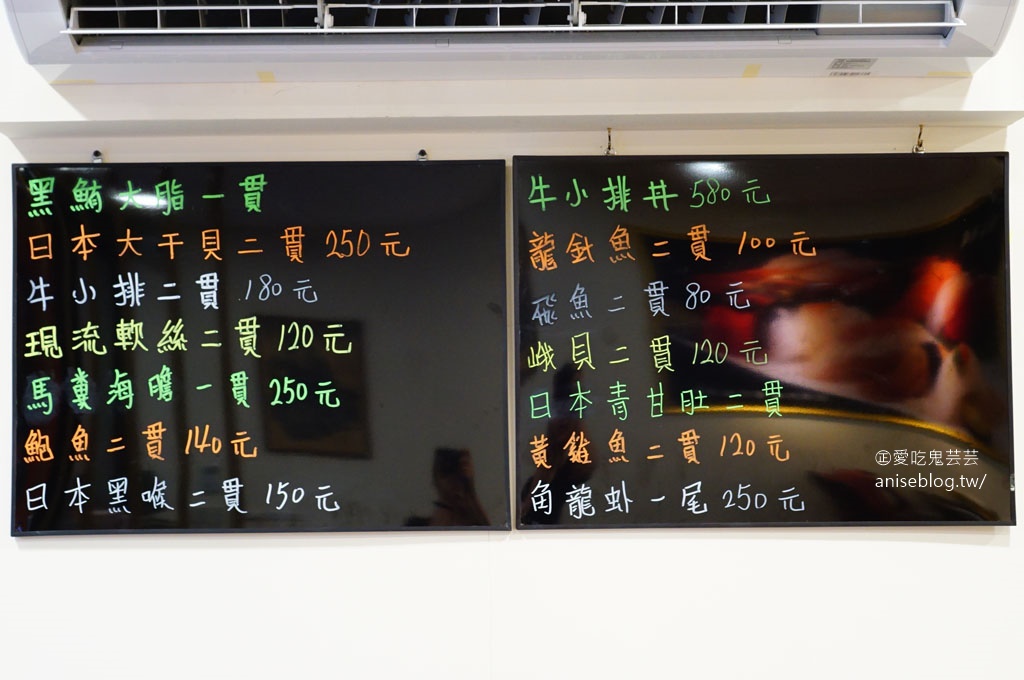 黑鮪大脂一貫
日本大干貝二貫 250元
牛小排二貫 180元
現流軟絲二貫 120元
馬糞海膽一貫 250元
鮑魚二貫 140元
日本黑喉二貫 150元
牛小排丼 580元
龍針魚二貫 100元
飛魚二貫 80元
峨貝二貫 120元
日本青甘肚二貫
黃雞魚二貫 120元
角龍虾一尾 250元
㊣愛吃鬼芸芸
aniseblog.tw/